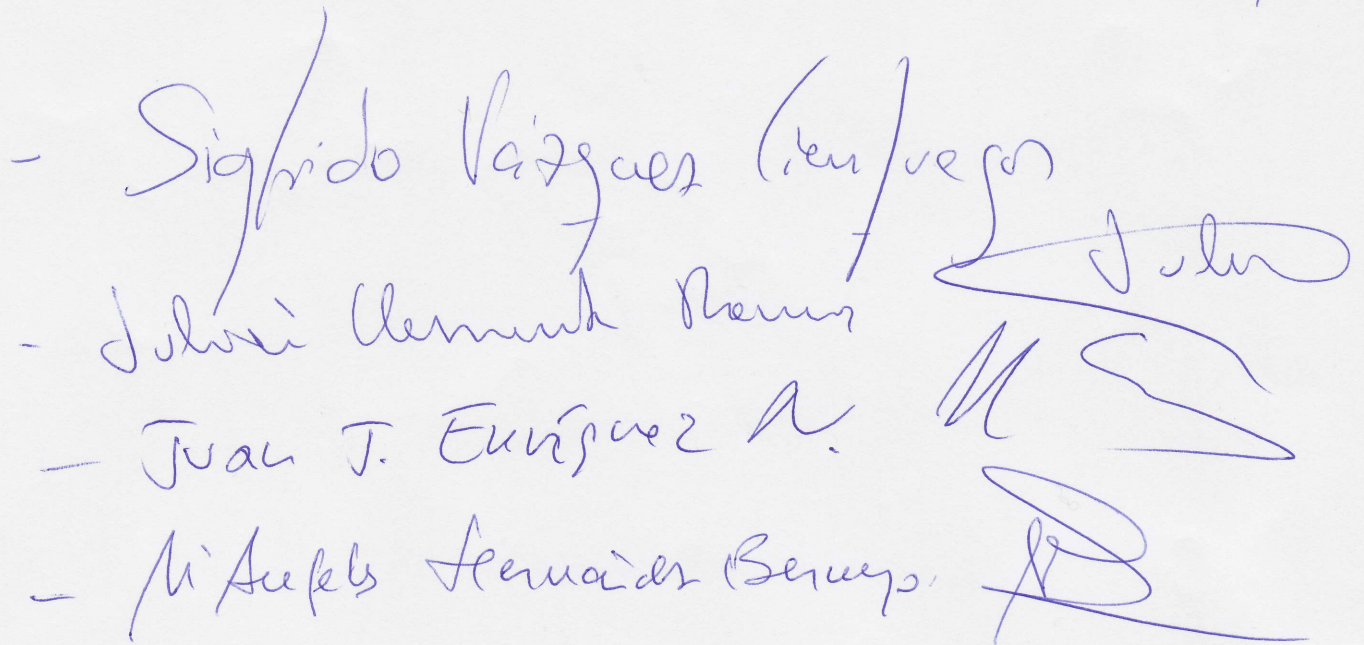 - Sigfrido Vázquez Cienfuegos
- Julián Clemente Ramos Julián
- Juan J. Enríquez N.
- Mª Angeles Hernández Bermejo